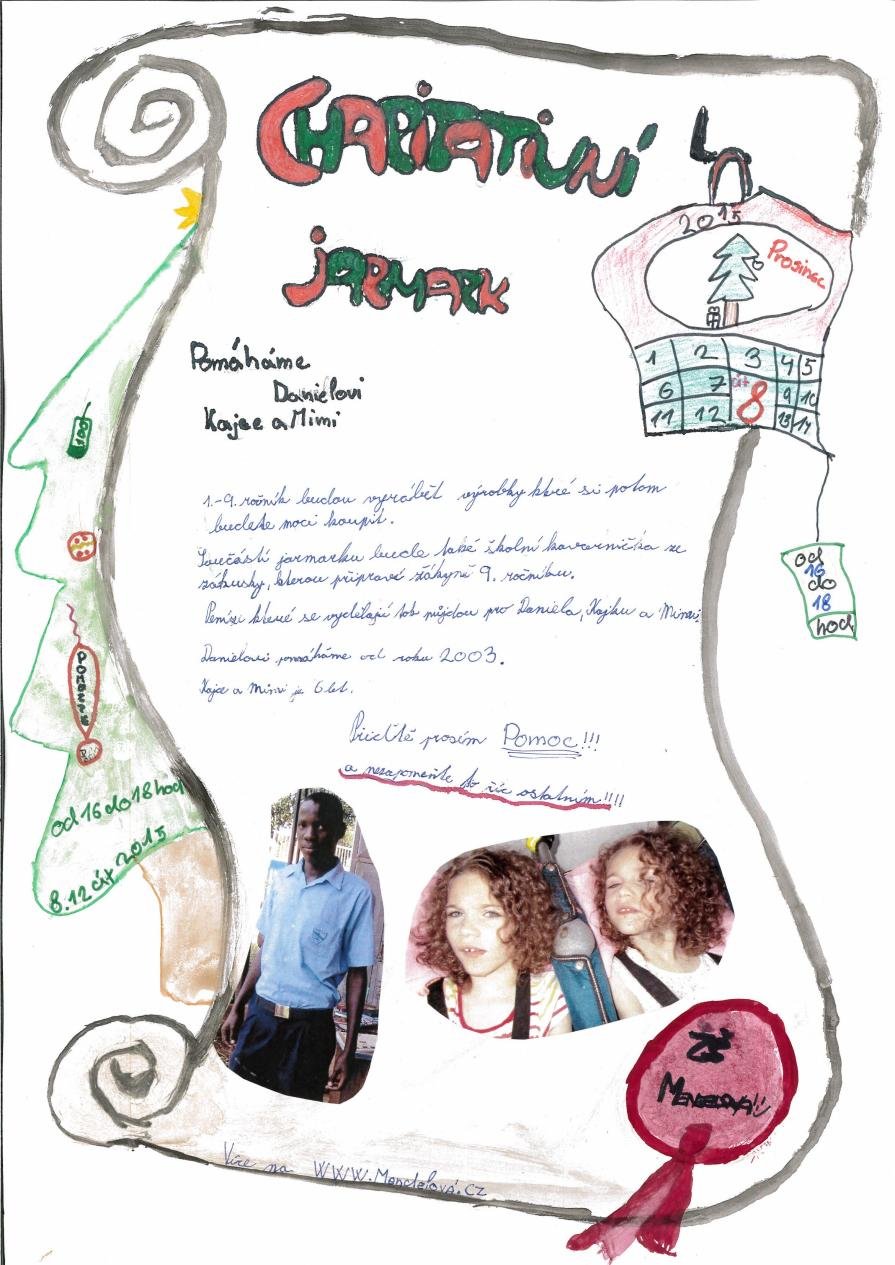 CHARITATIVNÍ
jARMARK
2015
Prosinec
1 2 3 4 5
6 7 čt 8 9 10
11 12 13 14
od
16
do
18
hod
Pomáháme
Danielovi
Kajce a Mimi
1.-9. ročník budou vyrábět výrobky které si potom
budete moci koupit.
Součástí jarmarku bude také školní kavárnička se
zákusky, kterou připraví žákyně 9. ročníku.
Penízi které se vydělají tak půjdou pro Daniela, Kajku a Mimi.
Danielovi pomáháme od roku 2003.
Kajce a Mimi je 6 let.
Přijďtě prosím Pomoc!!!
a nezapomeňte to říc ostatním!!!!
100
POMOZTE
od 16 do 18 hod
8.12 čt 2015
ZŠ
MENDELOVA!!
Více na WWW.Mendelová.cz